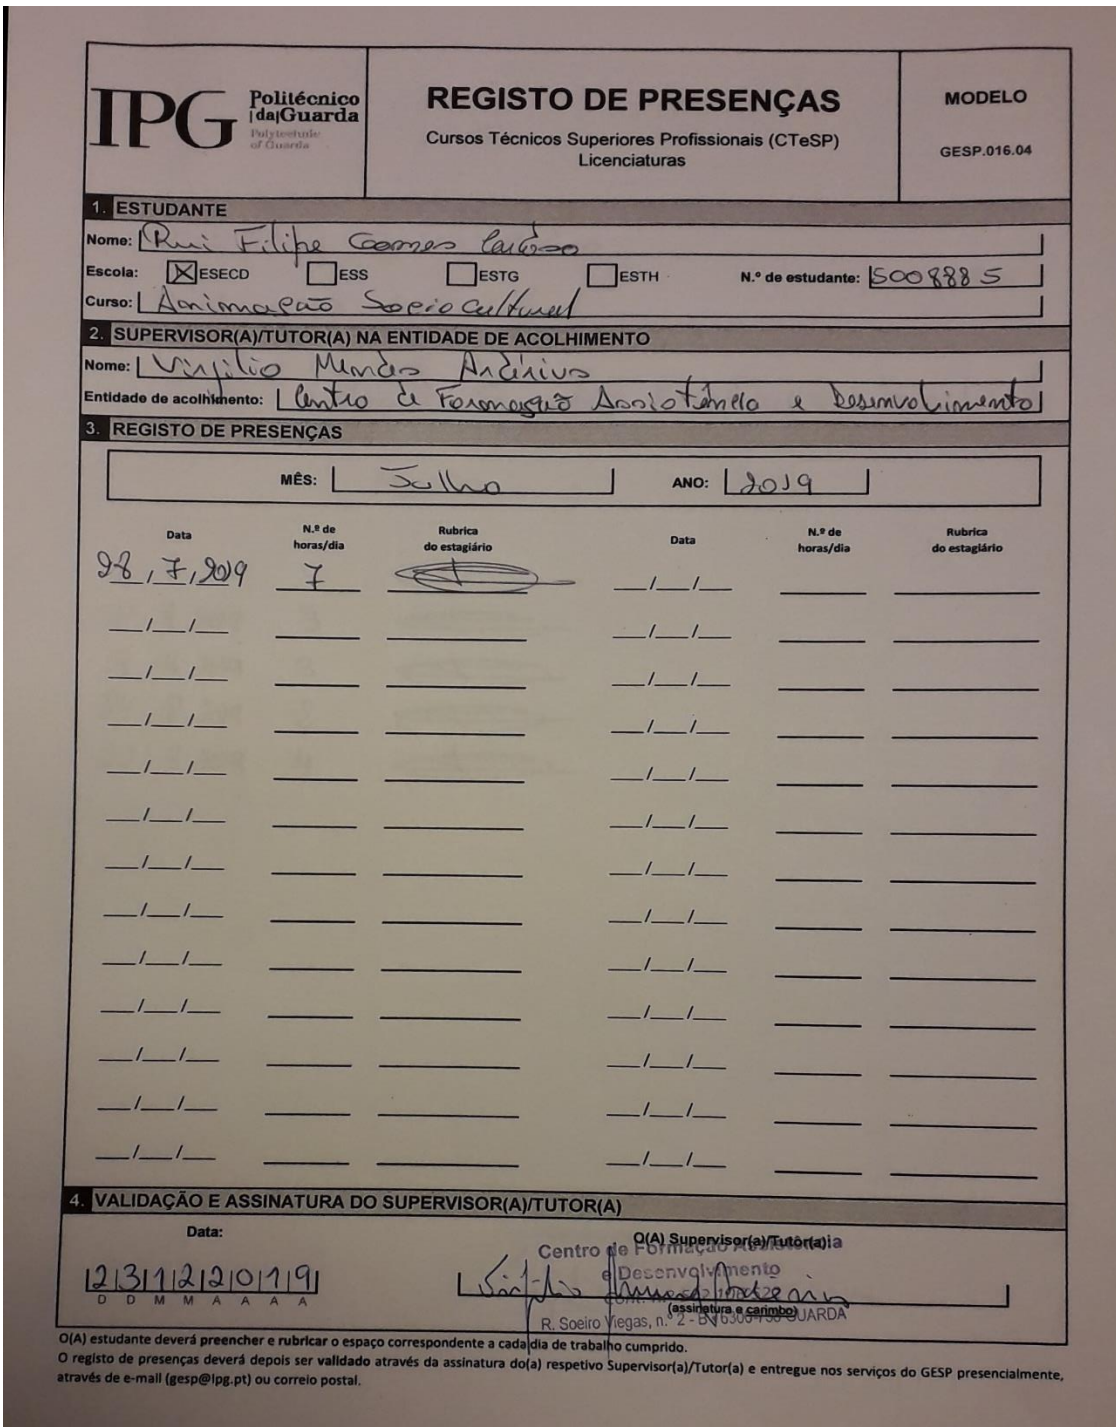 IPG Politécnico
|da|Guarda
Polytechnic
of Guarda
REGISTO DE PRESENÇAS
Cursos Técnicos Superiores Profissionais (CTeSP)
Licenciaturas
MODELO
GESP.016.04
1. ESTUDANTE
Nome: Rui Filipe Gomes
Escola: ESECD ESS ESTG ESTH N.º de estudante: 5008885
Curso: Animação Sociocultural
2. SUPERVISOR(A)/TUTOR(A) NA ENTIDADE DE ACOLHIMENTO
Nome: Virgilio Mendes
Entidade de acolhimento: Centro de Formação Assistência e Desenvolvimento
3. REGISTO DE PRESENÇAS
MÊS: Julho ANO: 2019
Data N.º de horas/dia Rubrica do estagiário Data N.º de horas/dia Rubrica do estagiário
28/7/2019 7 __/__/__
__/__/__ __/__/__
__/__/__ __/__/__
__/__/__ __/__/__
__/__/__ __/__/__
__/__/__ __/__/__
__/__/__ __/__/__
__/__/__ __/__/__
__/__/__ __/__/__
__/__/__ __/__/__
__/__/__ __/__/__
__/__/__ __/__/__
__/__/__ __/__/__
4. VALIDAÇÃO E ASSINATURA DO SUPERVISOR(A)/TUTOR(A)
Data:
O(A) Supervisor(a)/Tutor(a)
Centro de Formação Assistência
e Desenvolvimento
23122019
D D M M A A A A
(assinatura e carimbo)
R. Soeiro Viegas, n.º 2 - GUARDA
O(A) estudante deverá preencher e rubricar o espaço correspondente a cada dia de trabalho cumprido.
O registo de presenças deverá depois ser validado através da assinatura do(a) respetivo Supervisor(a)/Tutor(a) e entregue nos serviços do GESP presencialmente,
através de e-mail (gesp@ipg.pt) ou correio postal.